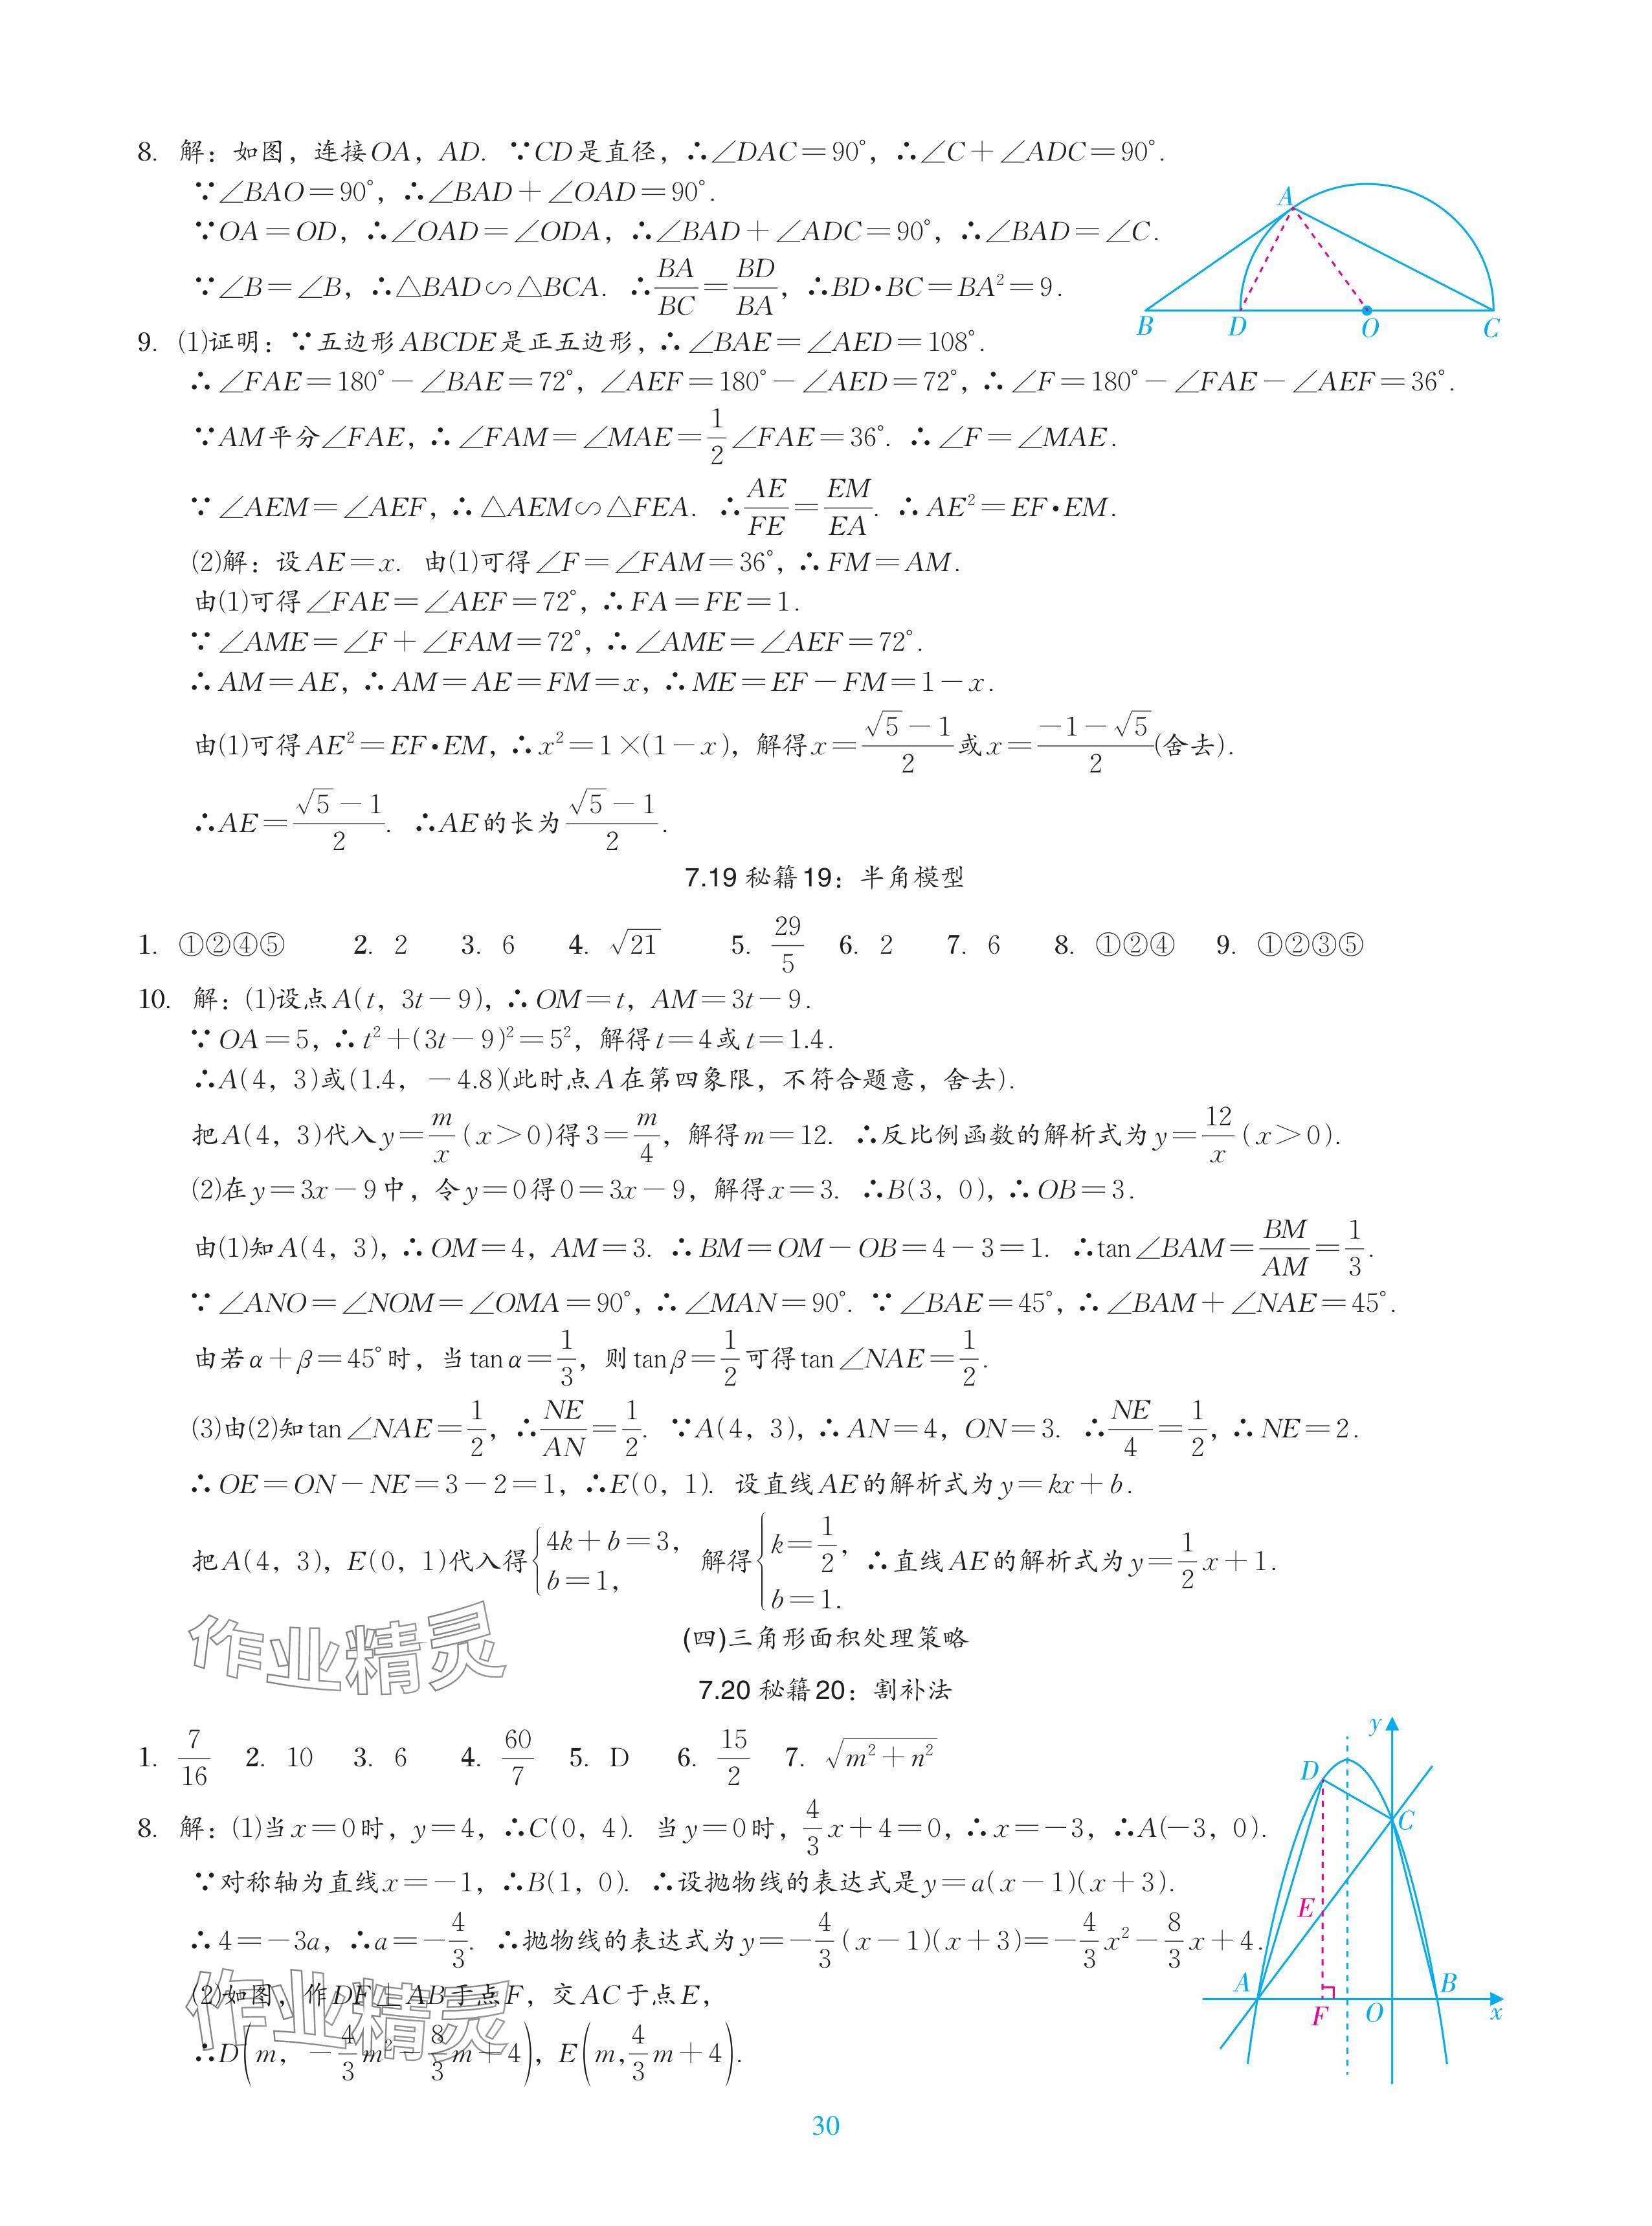 8. 解：如图，连接OA，AD. ∵CD是直径，∴∠DAC＝90°，∴∠C＋∠ADC＝90°.
∵∠BAO＝90°，∴∠BAD＋∠OAD＝90°.
∵OA＝OD，∴∠OAD＝∠ODA，∴∠BAD＋∠ADC＝90°，∴∠BAD＝∠C.
∵∠B＝∠B，∴△BAD∽△BCA. ∴BA/BC＝BD/BA，∴BD•BC＝BA²＝9.
A
B D O C
9. (1)证明：∵五边形ABCDE是正五边形，∴∠BAE＝∠AED＝108°.
∴∠FAE＝180°－∠BAE＝72°，∠AEF＝180°－∠AED＝72°，∴∠F＝180°－∠FAE－∠AEF＝36°.
∵AM平分∠FAE，∴∠FAM＝∠MAE＝1/2∠FAE＝36°. ∴∠F＝∠MAE.
∵∠AEM＝∠AEF，∴△AEM∽△FEA. ∴AE/FE＝EM/EA. ∴AE²＝EF•EM.
(2)解：设AE＝x. 由(1)可得∠F＝∠FAM＝36°，∴FM＝AM.
由(1)可得∠FAE＝∠AEF＝72°，∴FA＝FE＝1.
∵∠AME＝∠F＋∠FAM＝72°，∴∠AME＝∠AEF＝72°.
∴AM＝AE，∴AM＝AE＝FM＝x，∴ME＝EF－FM＝1－x.
由(1)可得AE²＝EF•EM，∴x²＝1×(1－x)，解得x＝(√5－1)/2或x＝(－1－√5)/2(舍去).
∴AE＝(√5－1)/2. ∴AE的长为(√5－1)/2.
7.19 秘籍19：半角模型
1. ①②④⑤ 2. 2 3. 6 4. √21 5. 29/5 6. 2 7. 6 8. ①②④ 9. ①②③⑤
10. 解：(1)设点A(t，3t－9)，∴OM＝t，AM＝3t－9.
∵OA＝5，∴t²＋(3t－9)²＝5²，解得t＝4或t＝1.4.
∴A(4，3)或(1.4，－4.8)(此时点A在第四象限，不符合题意，舍去).
把A(4，3)代入y＝m/x(x＞0)得3＝m/4，解得m＝12. ∴反比例函数的解析式为y＝12/x(x＞0).
(2)在y＝3x－9中，令y＝0得0＝3x－9，解得x＝3. ∴B(3，0)，∴OB＝3.
由(1)知A(4，3)，∴OM＝4，AM＝3. ∴BM＝OM－OB＝4－3＝1. ∴tan∠BAM＝BM/AM＝1/3.
∵∠ANO＝∠NOM＝∠OMA＝90°，∴∠MAN＝90°. ∵∠BAE＝45°，∴∠BAM＋∠NAE＝45°.
由若α＋β＝45°时，当tanα＝1/3，则tanβ＝1/2可得tan∠NAE＝1/2.
(3)由(2)知tan∠NAE＝1/2，∴NE/AN＝1/2. ∵A(4，3)，∴AN＝4，ON＝3. ∴NE/4＝1/2，∴NE＝2.
∴OE＝ON－NE＝3－2＝1，∴E(0，1). 设直线AE的解析式为y＝kx＋b.
把A(4，3)，E(0，1)代入得{4k＋b＝3，b＝1，解得{k＝1/2，b＝1. ∴直线AE的解析式为y＝1/2x＋1.
作业精灵
(四)三角形面积处理策略
7.20 秘籍20：割补法
1. 7/16 2. 10 3. 6 4. 60/7 5. D 6. 15/2 7. √(m²＋n²)
8. 解：(1)当x＝0时，y＝4，∴C(0，4). 当y＝0时，4/3x＋4＝0，∴x＝－3，∴A(－3，0).
∵对称轴为直线x＝－1，∴B(1，0). ∴设抛物线的表达式是y＝a(x－1)(x＋3).
∴4＝－3a，∴a＝－4/3. ∴抛物线的表达式为y＝－4/3(x－1)(x＋3)＝－4/3x²－8/3x＋4.
(2)如图，作DF⊥AB于点F，交AC于点E，
∴D(m，－4/3m²－8/3m＋4)，E(m,4/3m＋4).
作业精灵
y
D
C
E
A B
F O x
30